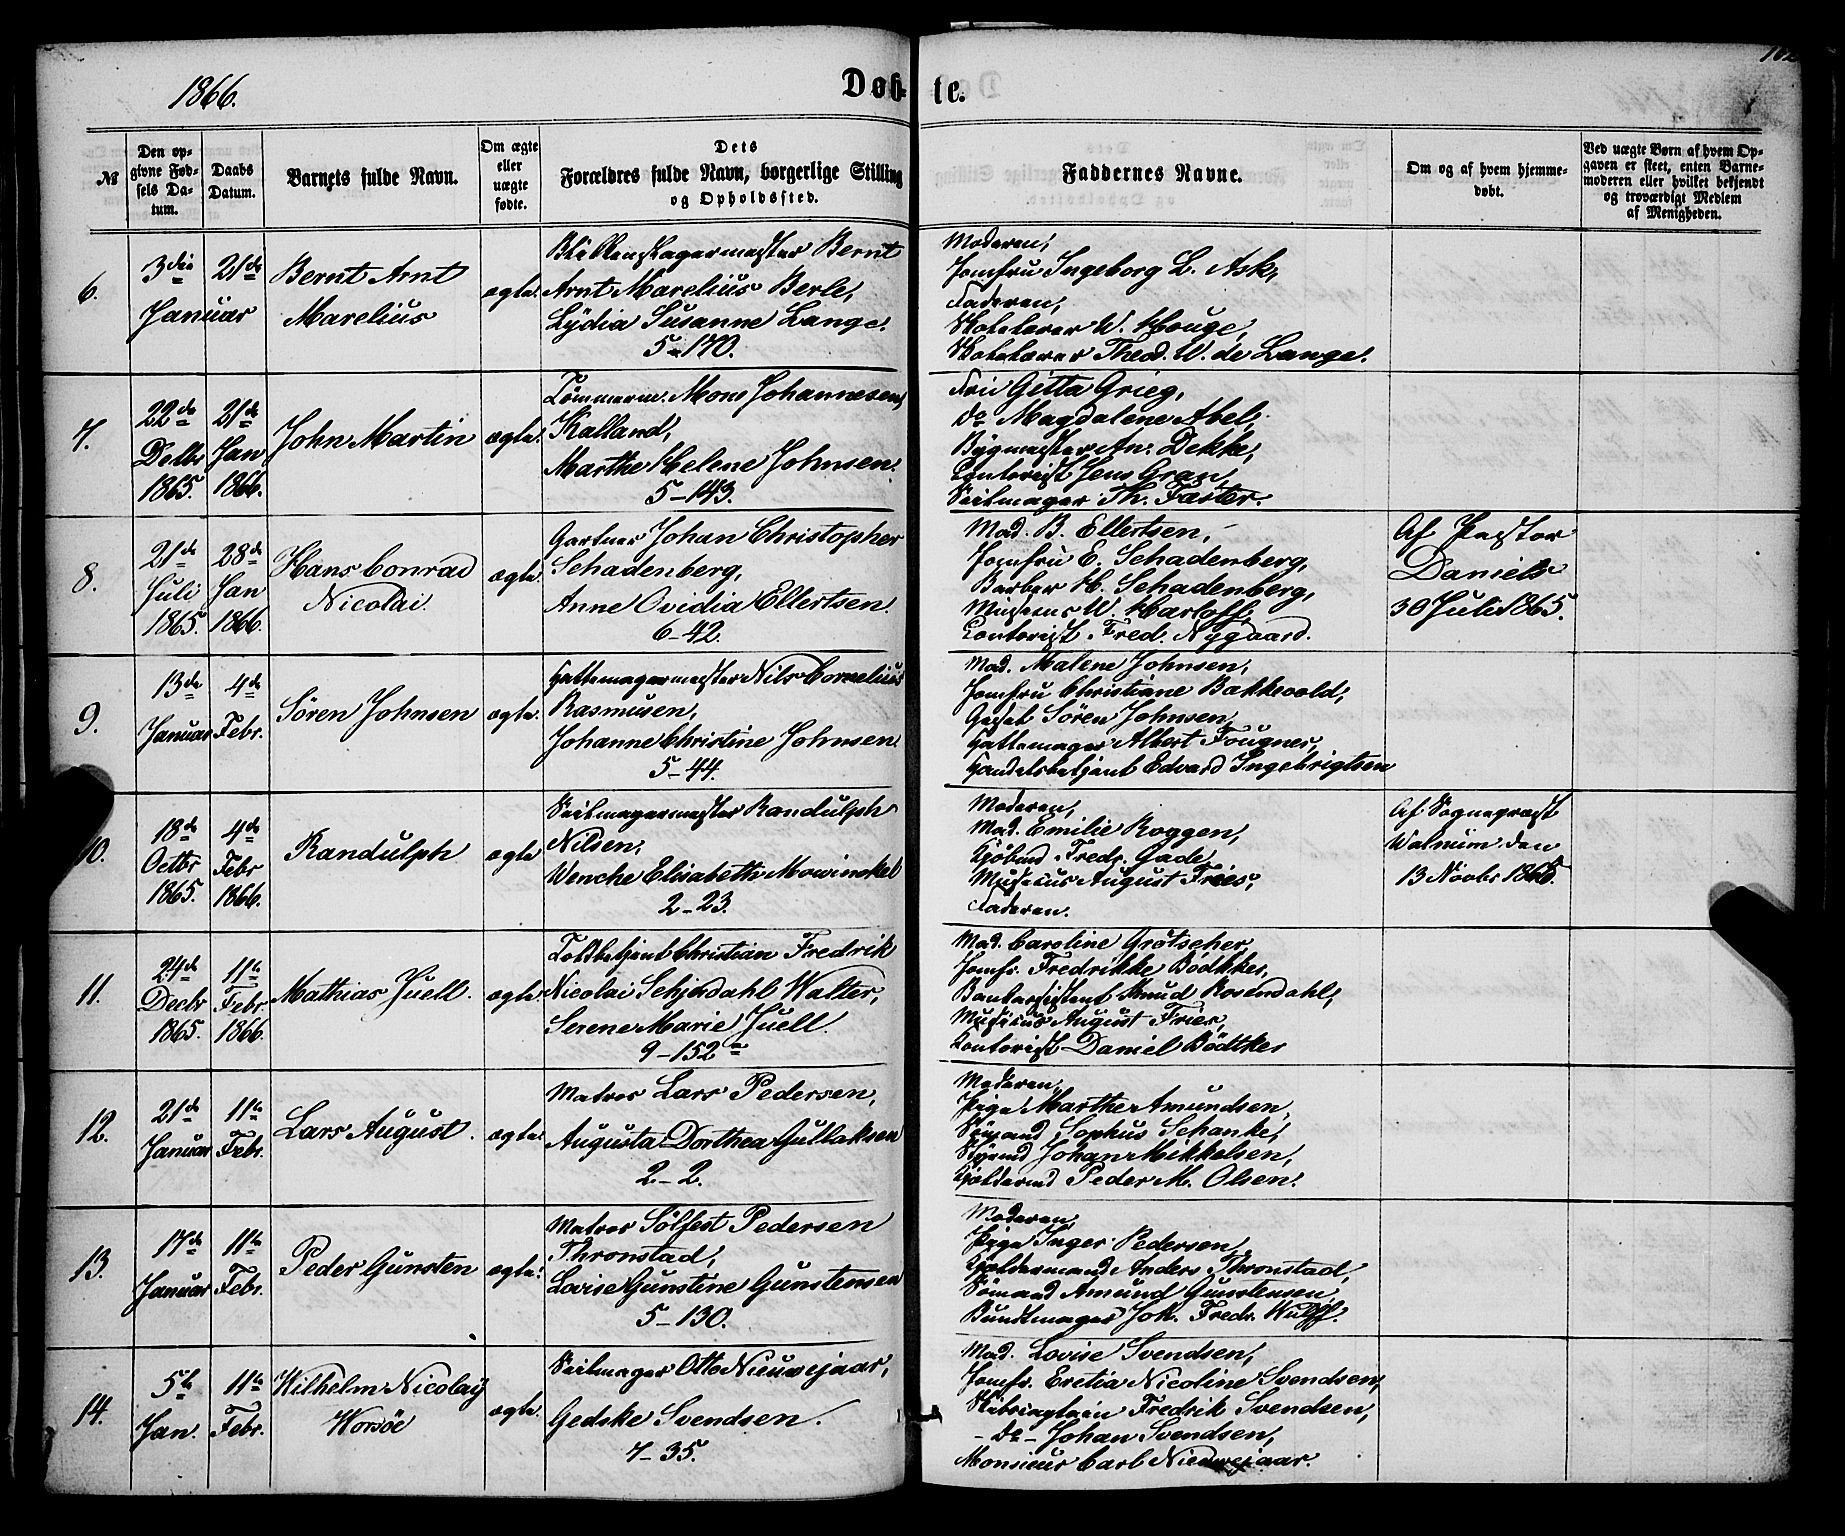 1866.
Døb-te.
№
Den opgivne Fødsels Datum.
Daabs Datum.
Barnets fulde Navn.
Om ægte eller uægte fødte.
Dets Forældres fulde Navn, borgerlige Stilling og Opholdssted.
Faddernes Navne.
Om og af hvem hjemmedøbt.
Ved uægte Børn af hvem Opgaven er skeet, enten Barnemoderen eller hvilket bekjendt og troværdigt Medlem af Menigheden.
6.
3die Januar
21de
Bernt Arnt
Marelius
ægte.
Blikkenslagermester Bernt
Arnt Marelius Berle,
Lydia Susanne Lange.
5-170.
Moderen,
Jomfru Ingeborg L. Ask,
Faderen,
W. Houge,
Theod. W. de Lange.
7.
22de
Decbr
1865.
21de
Jan
1866.
John Martin
ægte.
Tømmerm. Mons Johannesen
Kalland,
Marthe Helene Johnsen.
5-143.
Frk Gitta Grieg,
do Magdalene Abel,
Bygmester An. Dekke,
Contorist Jens Gran,
Seilmager Th. Faster.
8.
21de
Juli
1865.
28de
Jan
1866.
Hans Conrad
Nicolai
ægte.
Gartner Johan Christopher
Schadenberg,
Anne Ovidia Ellertsen.
6-42.
Mad. B. Ellertsen,
Jomfru E. Schadenberg,
Barber H. Schadenberg,
Musicus W. Harloff,
Contorist Fred. Nygaard.
Af Pastor
Daniels
30 Juli 1865.
9.
13de
Januar
4de
Febr.
Søren Johnsen
ægte.
Hattemagermester Nils Cornelius
Rasmusen,
Johanne Christine Johnsen.
5-44.
Mad. Malene Johnsen,
Jomfru Christiane Bakkevold,
Søren Johnsen,
Hattemager Albert Fougner,
Handelsbetjent Edvard Ingebrigtsen
10.
18de
Octbr
1865.
4de
Febr
1866.
Randulph
ægte
Seilmagermester Randulph
Nilsen,
Wenche Elisabeth Mowinckel
2-23.
Moderen,
Mad. Emilie Roggen,
Kjøbmd Fredr. Gade,
Musicus August Fries,
Faderen.
Af Sognepræst
Walnum den
13 Novbr 1865.
11.
24de
Decbr
1865.
11te
Febr.
1866.
Mathias Juell.
ægte
Toldbetjent Christian Fredrik
Nicolai Schjerdahl Walter,
Serene Marie Juell.
9-152a
Mad. Caroline Grötscher,
Jomfr. Fredrikke Bødtker,
Bankassistent Knud Rosendahl,
Musicus August Fries,
Contorist Daniel Bødtker
12.
21de
Januar
11te
Febr.
Lars August.
ægte.
Matros Lars Pedersen,
Augusta Dorthea Gullaksen
2-2.
Moderen,
Pige Marthe Amundsen,
Sømand Sophus Schanke,
Styrmd Johan Mikkelsen,
Peder M. Olsen.
13.
17de
Januar
11te
Febr.
Peder Gunsten
ægte.
Matros Sølfest Pedersen
Thronstad,
Lovise Gunstine Gunstensen
5-130.
Moderen,
Pige Inger Pedersen,
Anders Thronstad,
Sømand Amund Gunstensen,
Bundtmager Joh. Fredr. Wulff.
14.
5te
Jan.
11te
Febr.
Wilhelm Nicolay
Worsöe
ægte.
Seilmager Otto Nieuwejaar,
Gedske Svendsen.
7-35.
Mad. Lovise Svendsen,
Jomfr. Eretia Nicoline Svendsen,
Skibscaptain Fredrik Svendsen,
- do - Johan Svendsen,
Monsieur Carl Nieuwejaar.